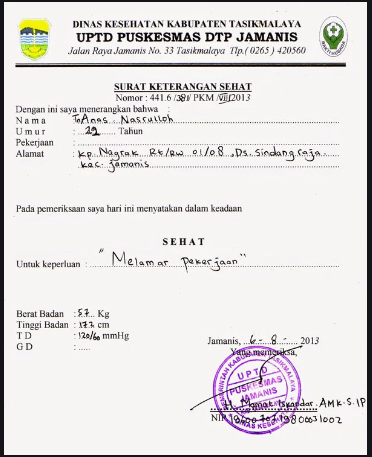 DINAS KESEHATAN KABUPATEN TASIKMALAYA
UPTD PUSKESMAS DTP JAMANIS
Jalan Raya Jamanis No. 33 Tasikmalaya Tlp.( 0265 ) 420560
SURAT KETERANGAN SEHAT
Nomor : 441.6 /381/ PKM /VIII/2013
Dengan ini saya menerangkan bahwa :
N a m a : Anas Nasrulloh
U m u r : 22 Tahun
Pekerjaan :
Alamat : Kp. Nagrak Rt/Rw 01/08, Ds. Sindangraja
Kec. Jamanis
Pada pemeriksaan saya hari ini menyatakan dalam keadaan
S E H A T
Untuk keperluan : "Melamar pekerjaan"
Berat Badan : 57 Kg
Tinggi Badan : 177 cm
T D : 120/60 mmHg
G D :
Jamanis, 6 - 8 - 2013
Yang memeriksa,
UPTD
PUSKESMAS
JAMANIS
Iskandar. AMK. S.IP
NIP